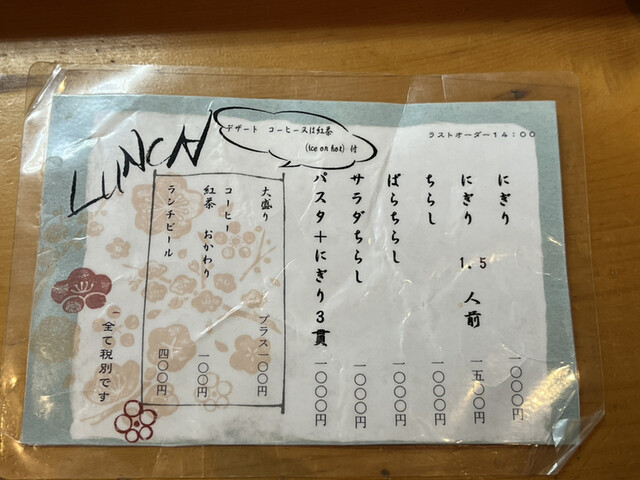 LUNCH
デザート コーヒー又は紅茶
(ice or hot) 付
ラストオーダー14:00
にぎり 一〇〇〇円
にぎり 1.5 人前 一五〇〇円
ちらし 一〇〇〇円
ばらちらし 一〇〇〇円
サラダちらし 一〇〇〇円
パスタ+にぎり3貫 一〇〇〇円
大盛り プラス一〇〇円
コーヒー
紅茶 おかわり 一〇〇円
ランチビール 四〇〇円
全て税別です